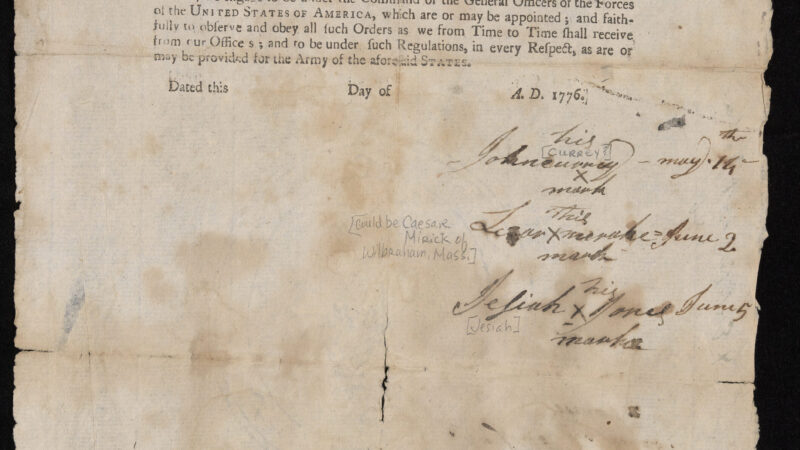 engage to be under the Command of the General Officers of the Forces
of the UNITED STATES OF AMERICA, which are or may be appointed ; and faith-
fully to observe and obey all such Orders as we from Time to Time shall receive
from our Office s ; and to be under such Regulations, in every Respect, as are or
may be provided for the Army of the aforesaid STATES.
Dated this Day of A. D. 1776.
his
[CURREY?]
John currey - may 14th
x
mark
[Could be Caesar
Mirick of
Wilbraham, Mass.]
this
x = June 2
mark
his
Jesiah x Jones June 5
[Jesiah]
mark